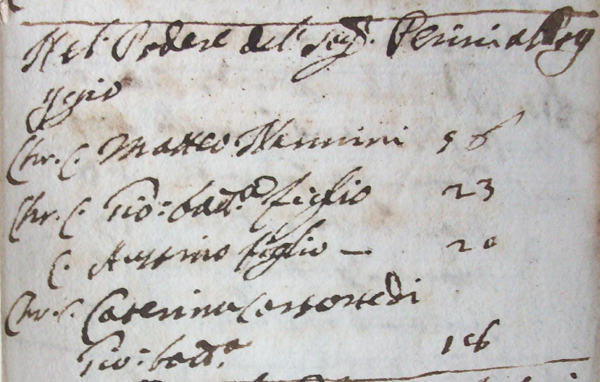 Nel Podere del Sig.r Perini al Pog
ggio
Chr. C. Matteo Nannini 56
Chr. C. Gio: batt.a figlio 23
C. figlio — 20
Chr. C. Caterina Consorte di
Gio: batt.a